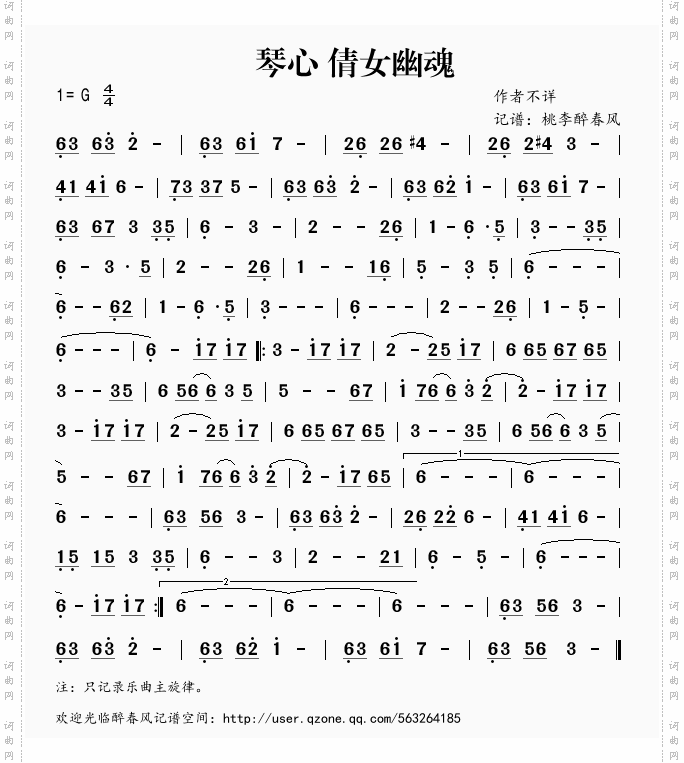 琴心 倩女幽魂
1= G 4/4
作者不详
记谱：桃李醉春风
6̣3 6̣3̇ 2̇ - | 6̣3 6i̇ 7 - | 26̣ 26̣ ♯4 - | 26̣ 2♯4 3 - |
4̣1 4i̇ 6 - | 7̣3 37 5 - | 6̣3 63̇ 2̇ - | 6̣3 62̇ i̇ - | 6̣3 6i̇ 7 - |
6̣3 67 3 3̣5̣ | 6̣ - 3 - | 2 - - 26̣ | 1 - 6̣ · 5̣ | 3̣ - - 3̣5̣ |
6̣ - 3 · 5 | 2 - - 26̣ | 1 - - 16̣ | 5̣ - 3̣ 5̣ | 6̣ - - - |
6̣ - - 6̣2 | 1 - 6̣ · 5̣ | 3̣ - - - | 6̣ - - - | 2 - - 26̣ | 1 - 5̣ - |
6̣ - - - | 6̣ - i̇7 i̇7 ‖: 3 - i̇7 i̇7 | 2 - 25 i̇7 | 6 65 67 65 |
3 - - 35 | 6 56 6 3 5 | 5 - - 67 | i̇ 76 6 3̇ 2̇ | 2̇ - i̇7 i̇7 |
3 - i̇7 i̇7 | 2 - 25 i̇7 | 6 65 67 65 | 3 - - 35 | 6 56 6 3 5 |
5 - - 67 | i̇ 76 6 3̇ 2̇ | 2̇ - i̇7 65 | 1 6 - - - | 6 - - - |
6 - - - | 6̣3 56 3 - | 6̣3 63̇ 2̇ - | 26̣ 22̇ 6 - | 4̣1 4i̇ 6 - |
1̣5̣ 15 3 3̣5̣ | 6̣ - - 3 | 2 - - 21 | 6̣ - 5̣ - | 6̣ - - - |
6̣ - i̇7 i̇7 :‖ 2 6 - - - | 6 - - - | 6 - - - | 6̣3 56 3 - |
6̣3 63̇ 2̇ - | 6̣3 62̇ i̇ - | 6̣3 6i̇ 7 - | 6̣3 56 3 - ‖
注：只记录乐曲主旋律。
欢迎光临醉春风记谱空间：http://user.qzone.qq.com/563264185
词曲网